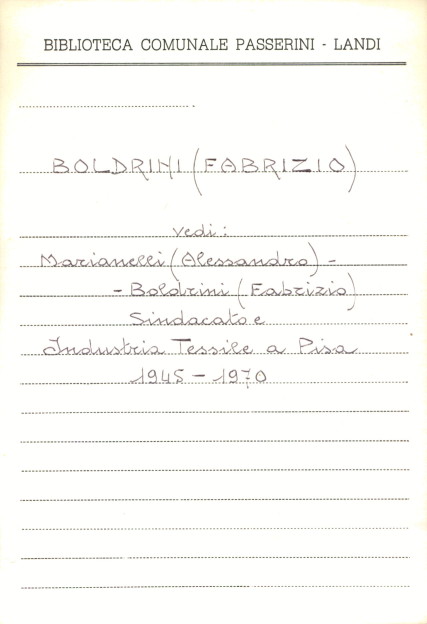 BIBLIOTECA COMUNALE PASSERINI - LANDI
BOLDRINI (FABRIZIO)
vedi:
Marianelli (Alessandro) -
- Boldrini (Fabrizio)
Sindacato e
Industria Tessile a Pisa
1945 - 1970